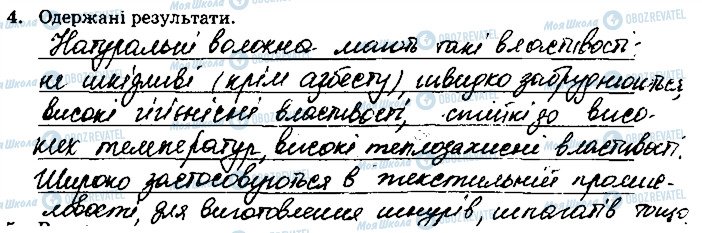 4. Одержані результати.
Натуральні волокна мають такі властивості:
не шкідливі (крім азбесту), швидко забруднюються,
високі гігієнісні властивості, стійкі до висо-
ких температур, високі теплозахисні властивості.
Широко застосовуються в текстильній промис-
ловості, для виготовлення шнурів, шпагатів тощо.